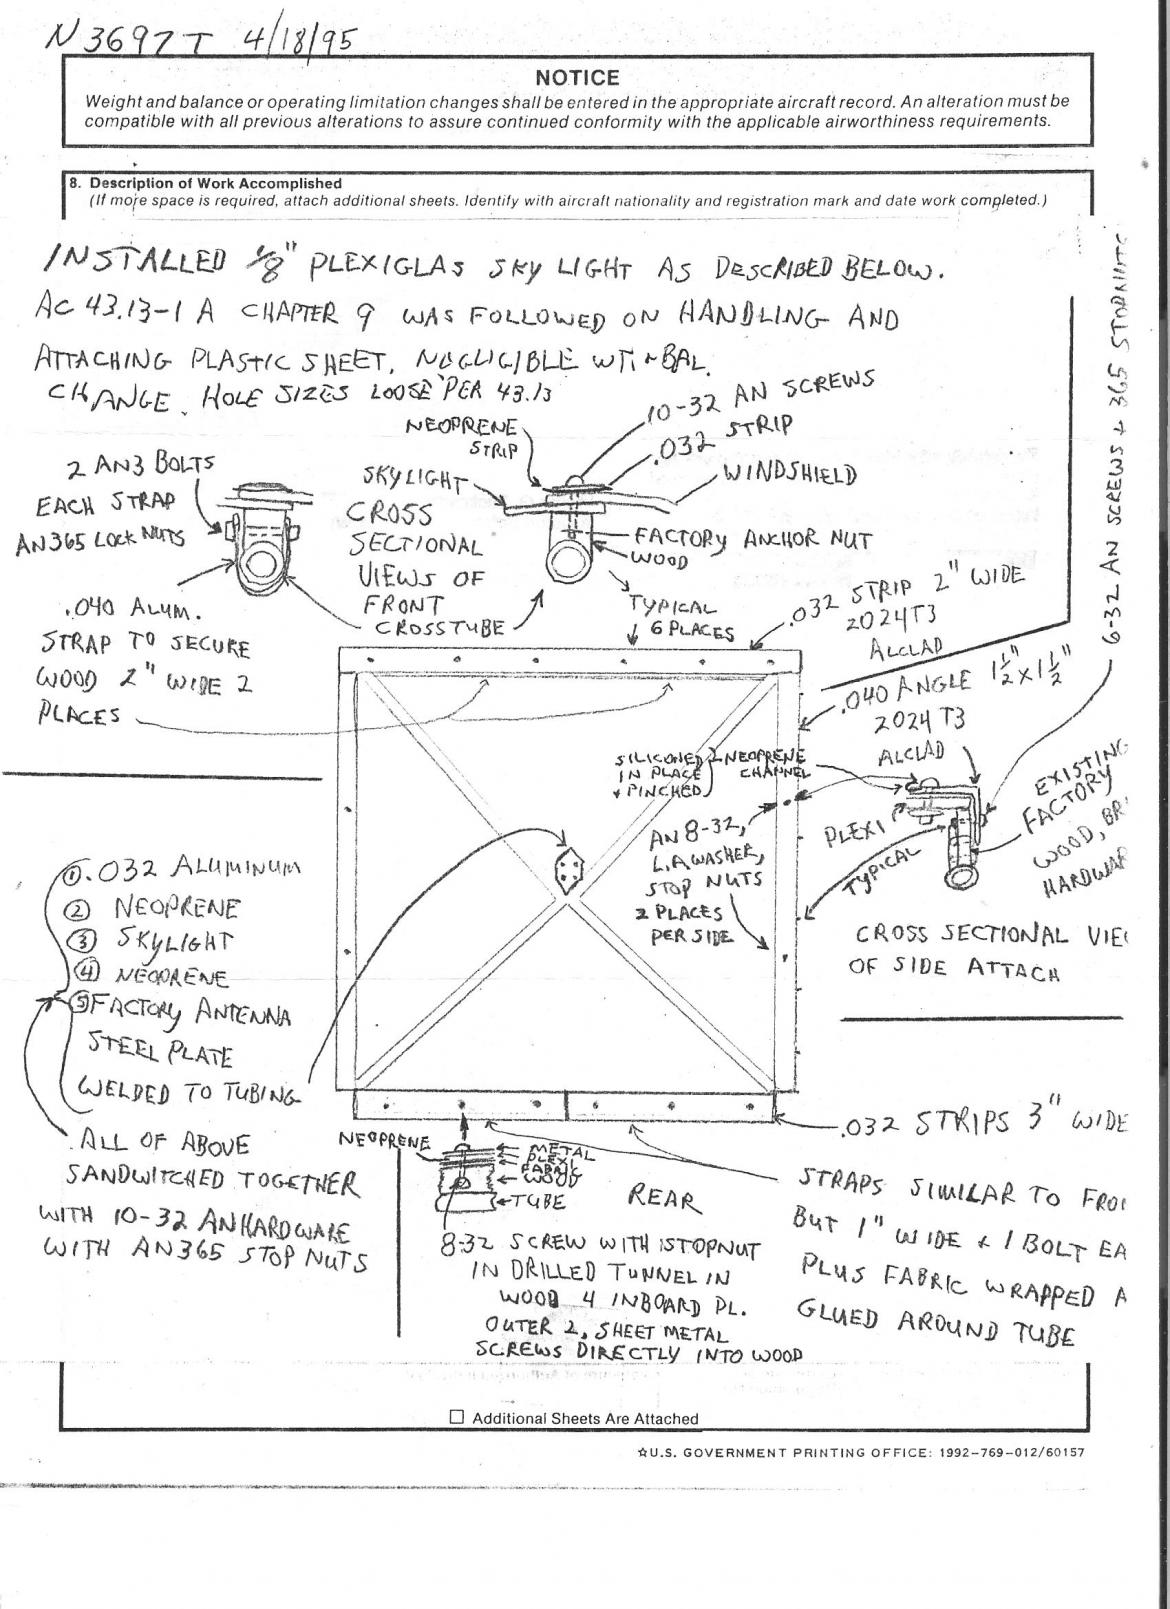 N3697T 4/18/95
NOTICE
Weight and balance or operating limitation changes shall be entered in the appropriate aircraft record. An alteration must be
compatible with all previous alterations to assure continued conformity with the applicable airworthiness requirements.
8. Description of Work Accomplished
(If more space is required, attach additional sheets. Identify with aircraft nationality and registration mark and date work completed.)
INSTALLED 1/8" PLEXIGLAS SKY LIGHT AS DESCRIBED BELOW.
AC 43.13-1A CHAPTER 9 WAS FOLLOWED ON HANDLING AND
ATTACHING PLASTIC SHEET. NEGLIGIBLE WT.~BAL.
CHANGE. HOLE SIZES LOOSE PER 43.13
2 AN3 BOLTS
EACH STRAP
AN365 LOCK NUTS
.040 ALUM.
STRAP TO SECURE
WOOD 2" WIDE 2
PLACES
NEOPRENE
STRIP
SKYLIGHT
CROSS
SECTIONAL
VIEWS OF
FRONT
CROSSTUBE
10-32 AN SCREWS
.032 STRIP
WINDSHIELD
FACTORY ANCHOR NUT
WOOD
TYPICAL
6 PLACES
.032 STRIP 2" WIDE
2024T3
ALCLAD
.040 ANGLE 1 1/2" X 1 1/2"
2024T3
ALCLAD
6-32 AN SCREWS + 365 STOPNUTS
SILICONED
IN PLACE
+ PINCHED
NEOPRENE
CHANNEL
AN 8-32,
L.A WASHER,
STOP NUTS
2 PLACES
PER SIDE
PLEXI
TYPICAL
EXISTING
FACTORY
WOOD, BR
HARDWAR
CROSS SECTIONAL VIE
OF SIDE ATTACH
① .032 ALUMINUM
② NEOPRENE
③ SKYLIGHT
④ NEOPRENE
⑤ FACTORY ANTENNA
STEEL PLATE
WELDED TO TUBING
ALL OF ABOVE
SANDWITCHED TOGETHER
WITH 10-32 AN HARDWARE
WITH AN365 STOP NUTS
NEOPRENE
METAL
PLEXI
FABRIC
WOOD
TUBE
REAR
8-32 SCREW WITH STOPNUT
IN DRILLED TUNNEL IN
WOOD 4 INBOARD PL.
OUTER 2, SHEET METAL
SCREWS DIRECTLY INTO WOOD
.032 STRIPS 3" WIDE
STRAPS SIMILAR TO FRO
BUT 1" WIDE + 1 BOLT EA
PLUS FABRIC WRAPPED A
GLUED AROUND TUBE
☐ Additional Sheets Are Attached
☆U.S. GOVERNMENT PRINTING OFFICE: 1992-769-012/60157